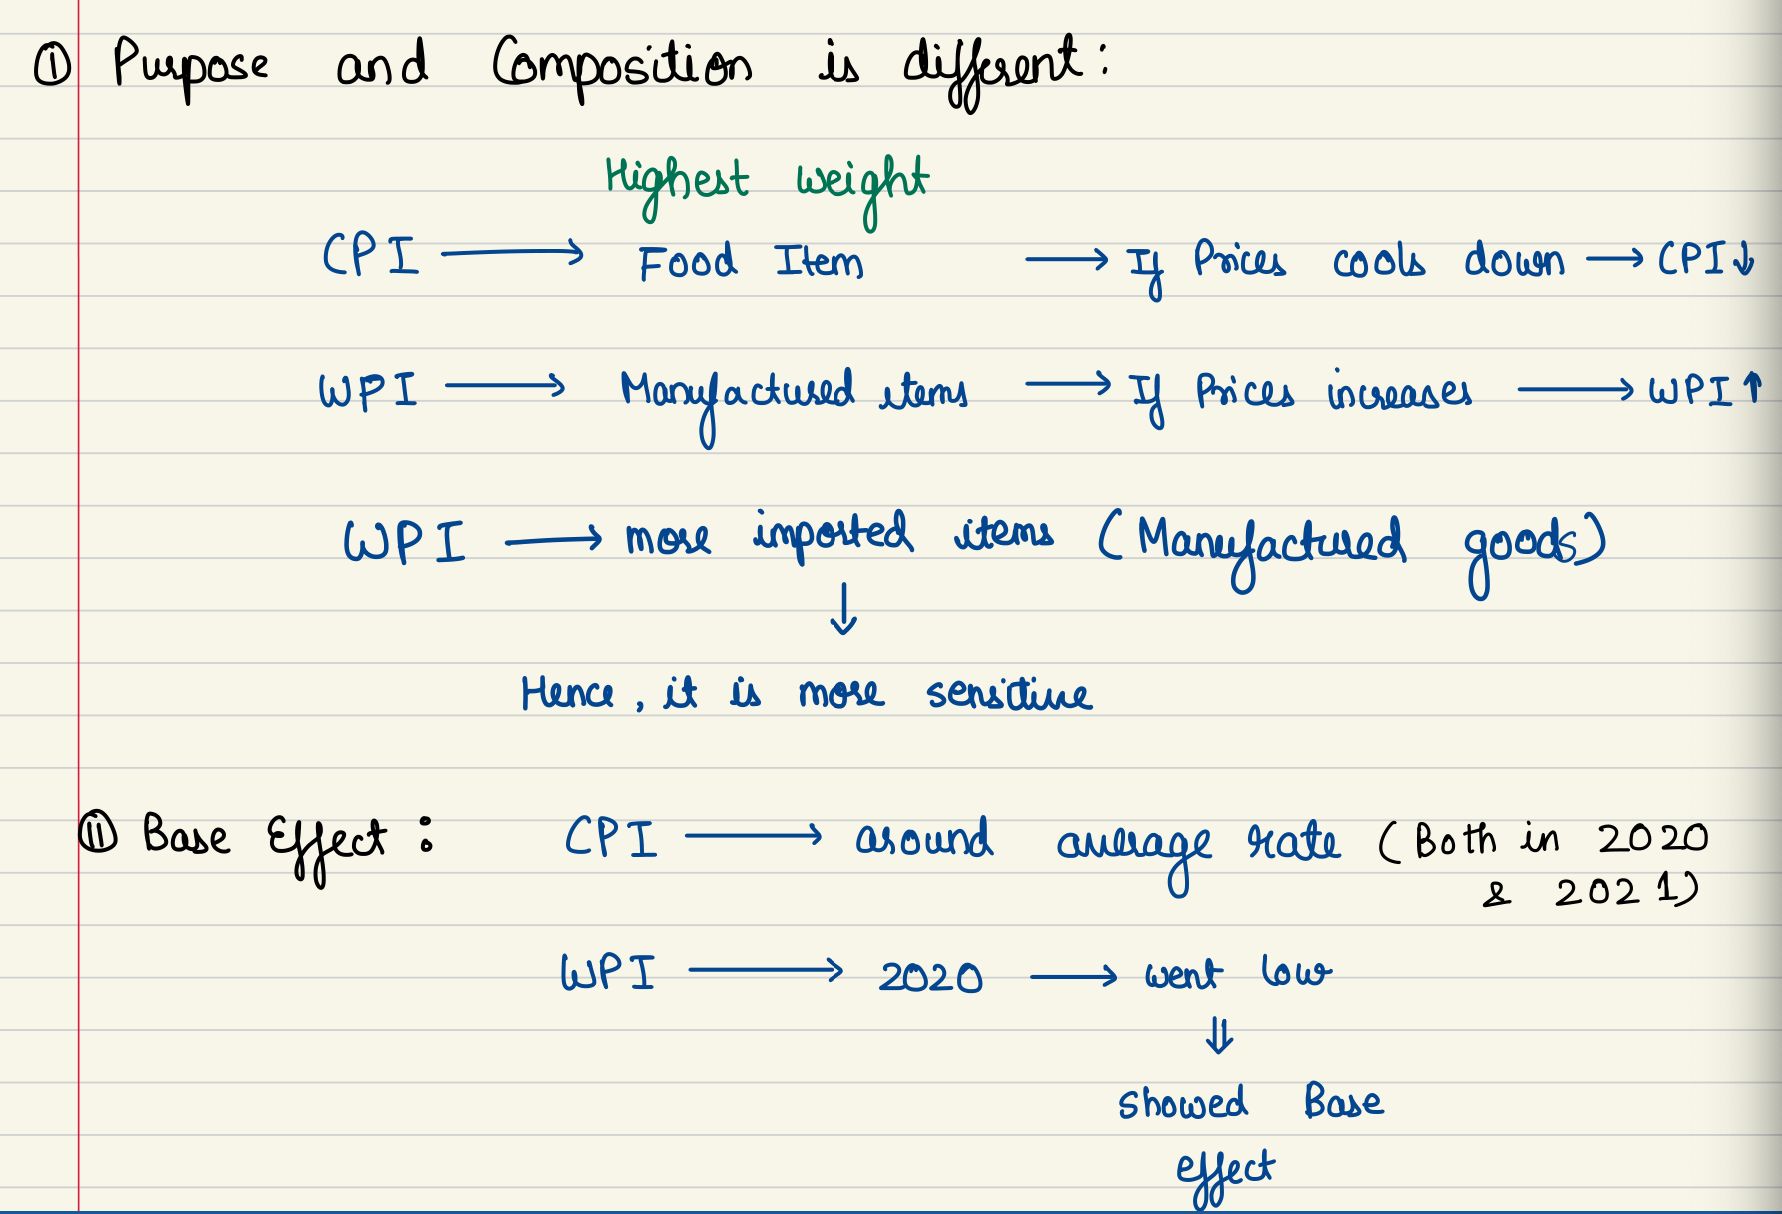 ① Purpose and Composition is different:
Highest weight
CPI → Food Item → If Prices cools down → CPI↓
WPI → Manufactured items → If Prices increases → WPI↑
WPI → more imported items (Manufactured goods)
↓
Hence, it is more sensitive
ⓘⓘ Base Effect: CPI → around average rate (Both in 2020
& 2021)
WPI → 2020 → went low
⇓
showed Base
effect